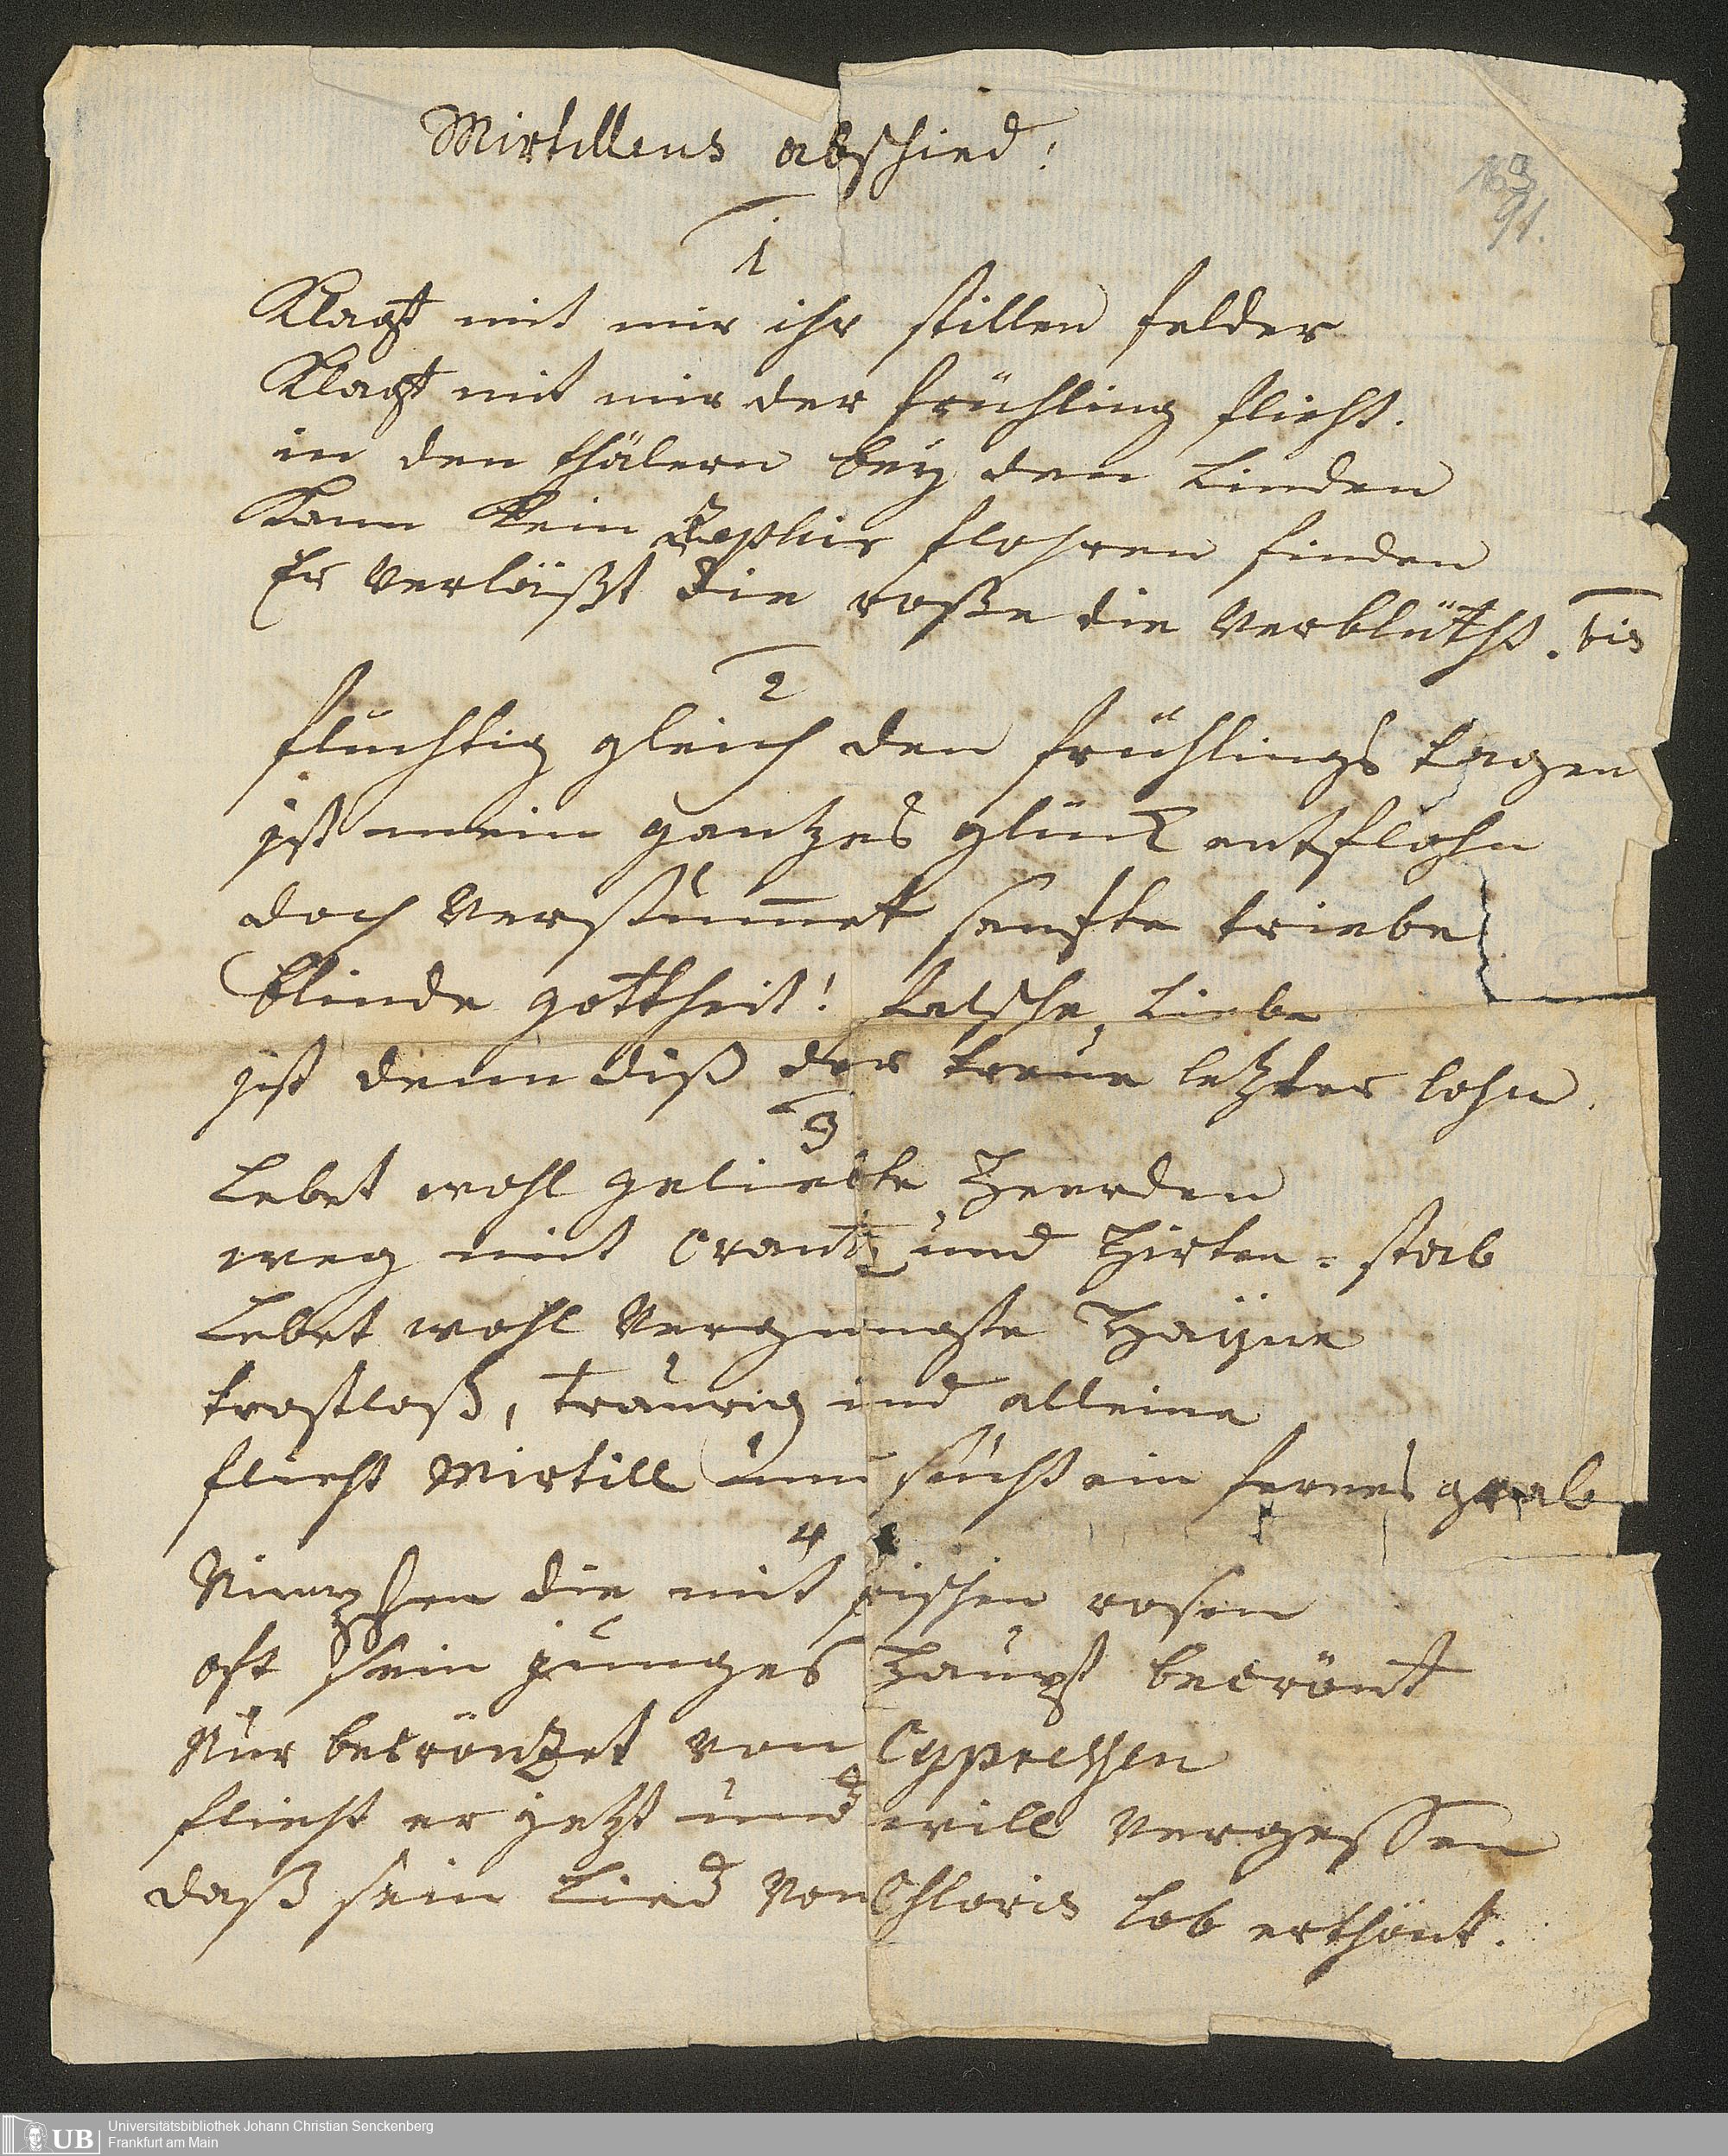 Mirtillens abschied:
163
91.
1
Klagt mit mir ihr stillen felder
Klagt mit mir der frühling flieht.
in den thälern beÿ den Linden
Kann Kein Zephir flohren finden
Er Verläßt die roße die Verblüht. bis
2
flüchtig gleich den frühlings tagen
ist mein gantzes glück entflohn
doch Verstum̅et sanfte triebe
blinde gottheit! falsche Liebe
ist denn diß der treue letzter lohn.
3
Lebet wohl geliebte Heerden
weg mit Crantz und Hirten = stab
Lebet wohl Vergnügste Haÿne
trostloß, traurig und alleine
flieht Mirtill und sucht ein fernes grab
4
Nimpfen die mit frischen rosen
oft sein junges Haupt becrönt
Nur becröntzet von Cypressen
flieht er jetzt und will Vergessen
daß sein Lied Von Chloris lob erthönt.
Universitätsbibliothek Johann Christian Senckenberg
Frankfurt am Main
UB